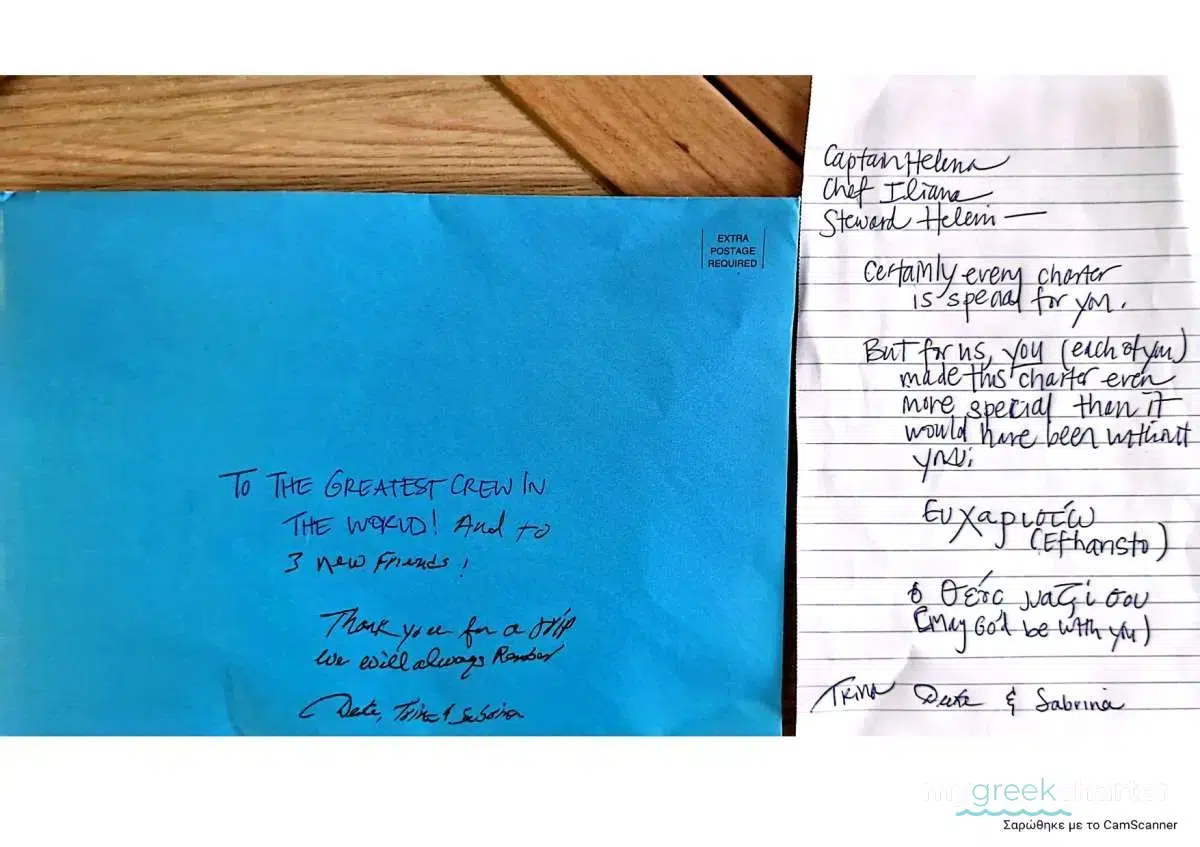 EXTRA
POSTAGE
REQUIRED
TO THE GREATEST CREW IN
THE WORLD! And to
3 new Friends!
Thank you for a trip
we will always
Trina & Sabrina
Captain Helena
Chef Iliana
Steward Heleni —
Certainly every charter
is special for you.
But for us, you (each of you)
made this charter even
more special than it
would have been without
you;
Ευχαριστώ
(Efharisto)
ο Θεός μαζί σου
(May God be with you)
Trina & Sabrina
mygreekcharter
Σαρώθηκε με το CamScanner